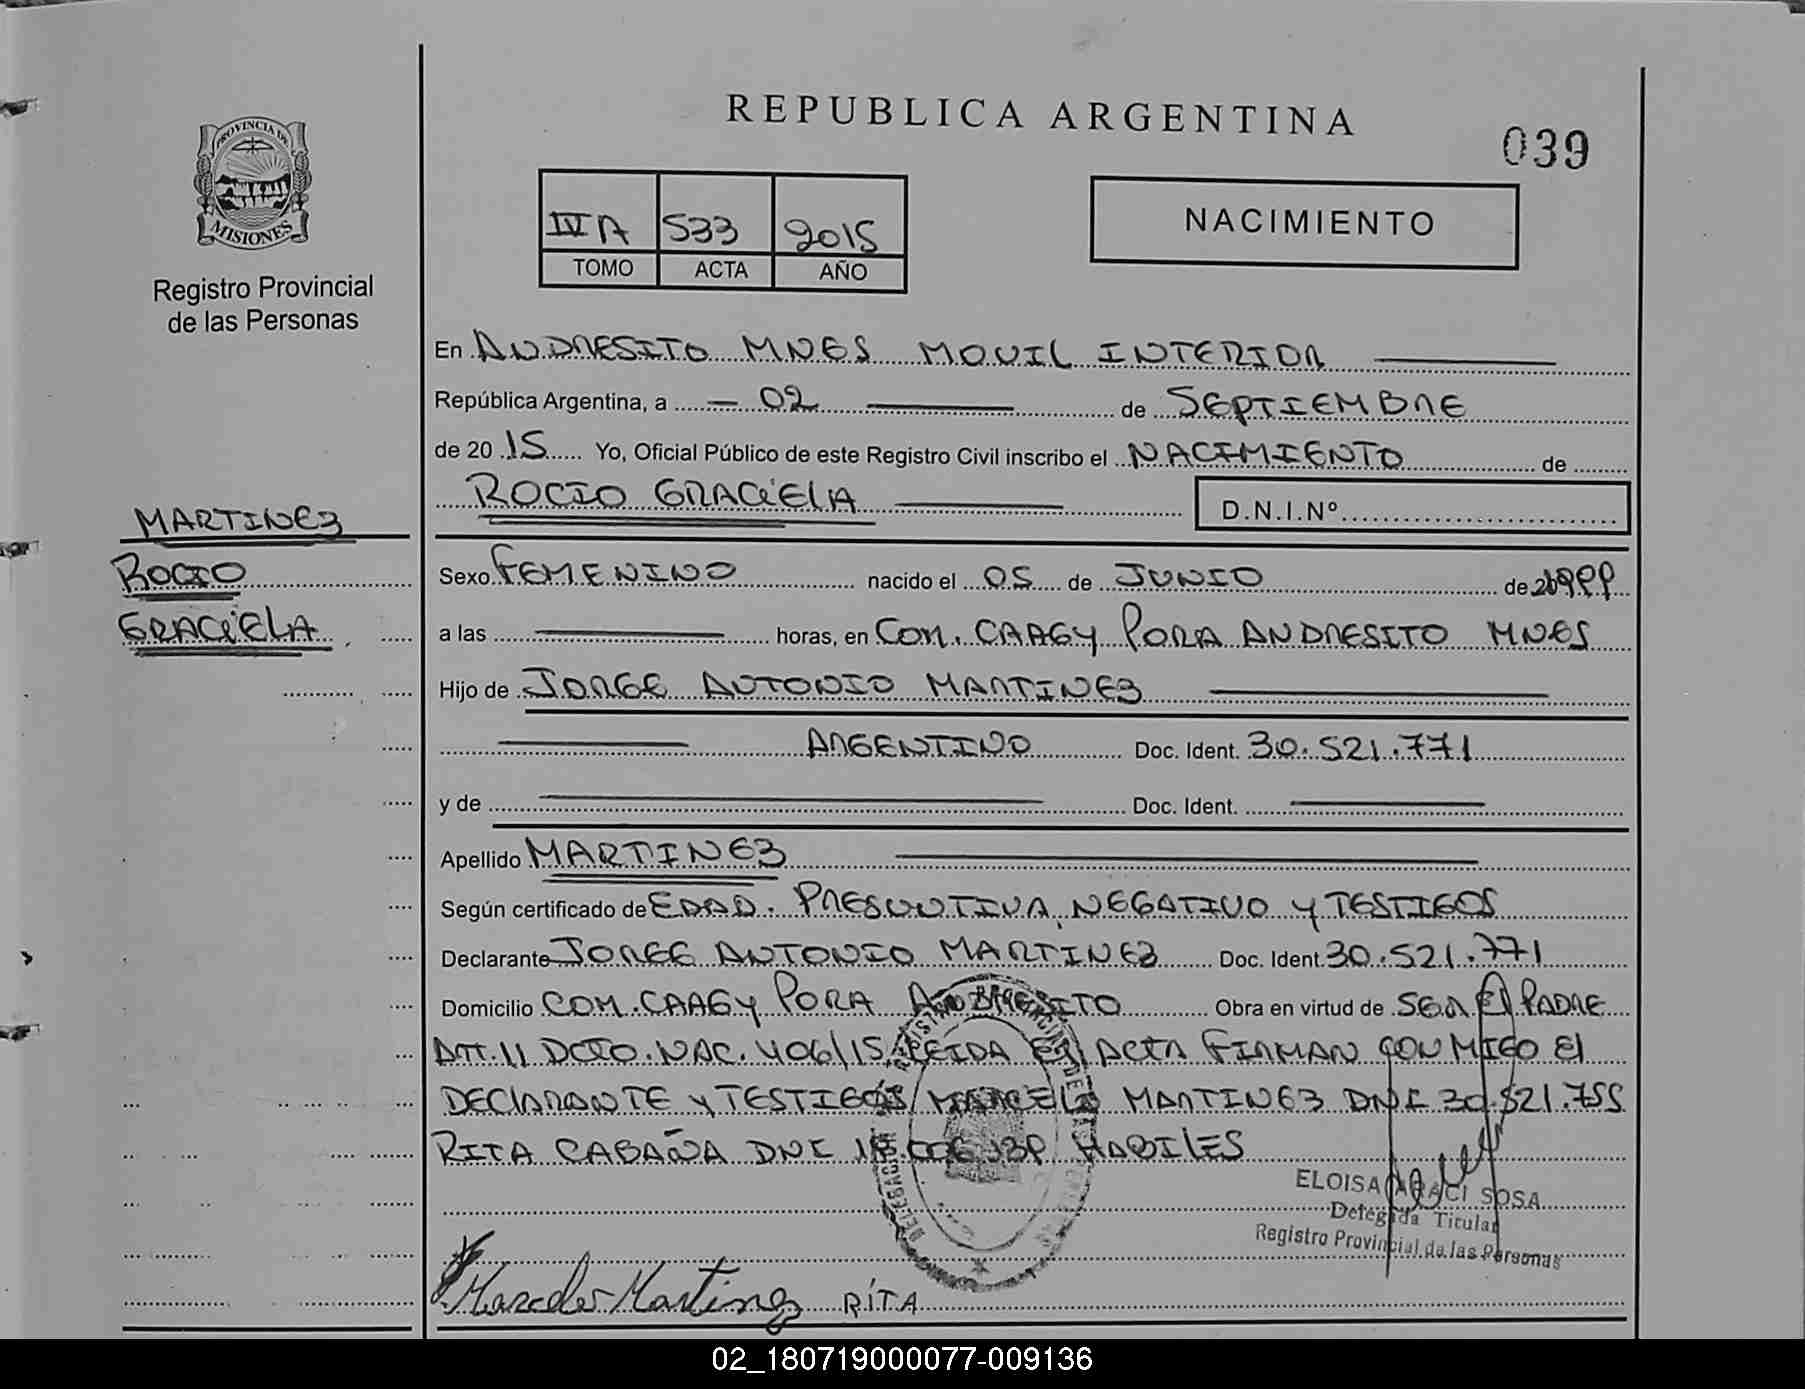 REPUBLICA ARGENTINA
039
PROVINCIA DE
MISIONES
Registro Provincial
de las Personas
IV A 533 2015
TOMO ACTA AÑO
NACIMIENTO
En ANDRESITO MNES MOVIL INTERIOR
República Argentina, a 02 de SEPTIEMBRE
de 2015 Yo, Oficial Público de este Registro Civil inscribo el NACIMIENTO de
ROCIO GRACIELA D.N.I.Nº
MARTINEZ
ROCIO
GRACIELA
Sexo FEMENINO nacido el 05 de JUNIO de
a las horas, en COM. CAAGY PORA ANDRESITO MNES
Hijo de JORGE ANTONIO MARTINEZ
ARGENTINO Doc. Ident. 30.521.771
y de Doc. Ident.
Apellido MARTINEZ
Según certificado de EDAD. PRESUNTIVA, NEGATIVO Y TESTIGOS
Declarante JORGE ANTONIO MARTINEZ Doc. Ident 30.521.771
Domicilio COM. CAAGY PORA ANDRESITO Obra en virtud de SER El PADRE
ART. 11 DCTO. NAC. 406/15 LEIDA El ACTA FIRMAN CONMIGO El
DECLARANTE Y TESTIGOS MARCELO MARTINEZ DNI 30.521.755
RITA CABAÑA DNI HABILES
ELOISA ARACI SOSA
Delegada Titular
Registro Provincial de las Personas
Martinez RITA
02_180719000077-009136